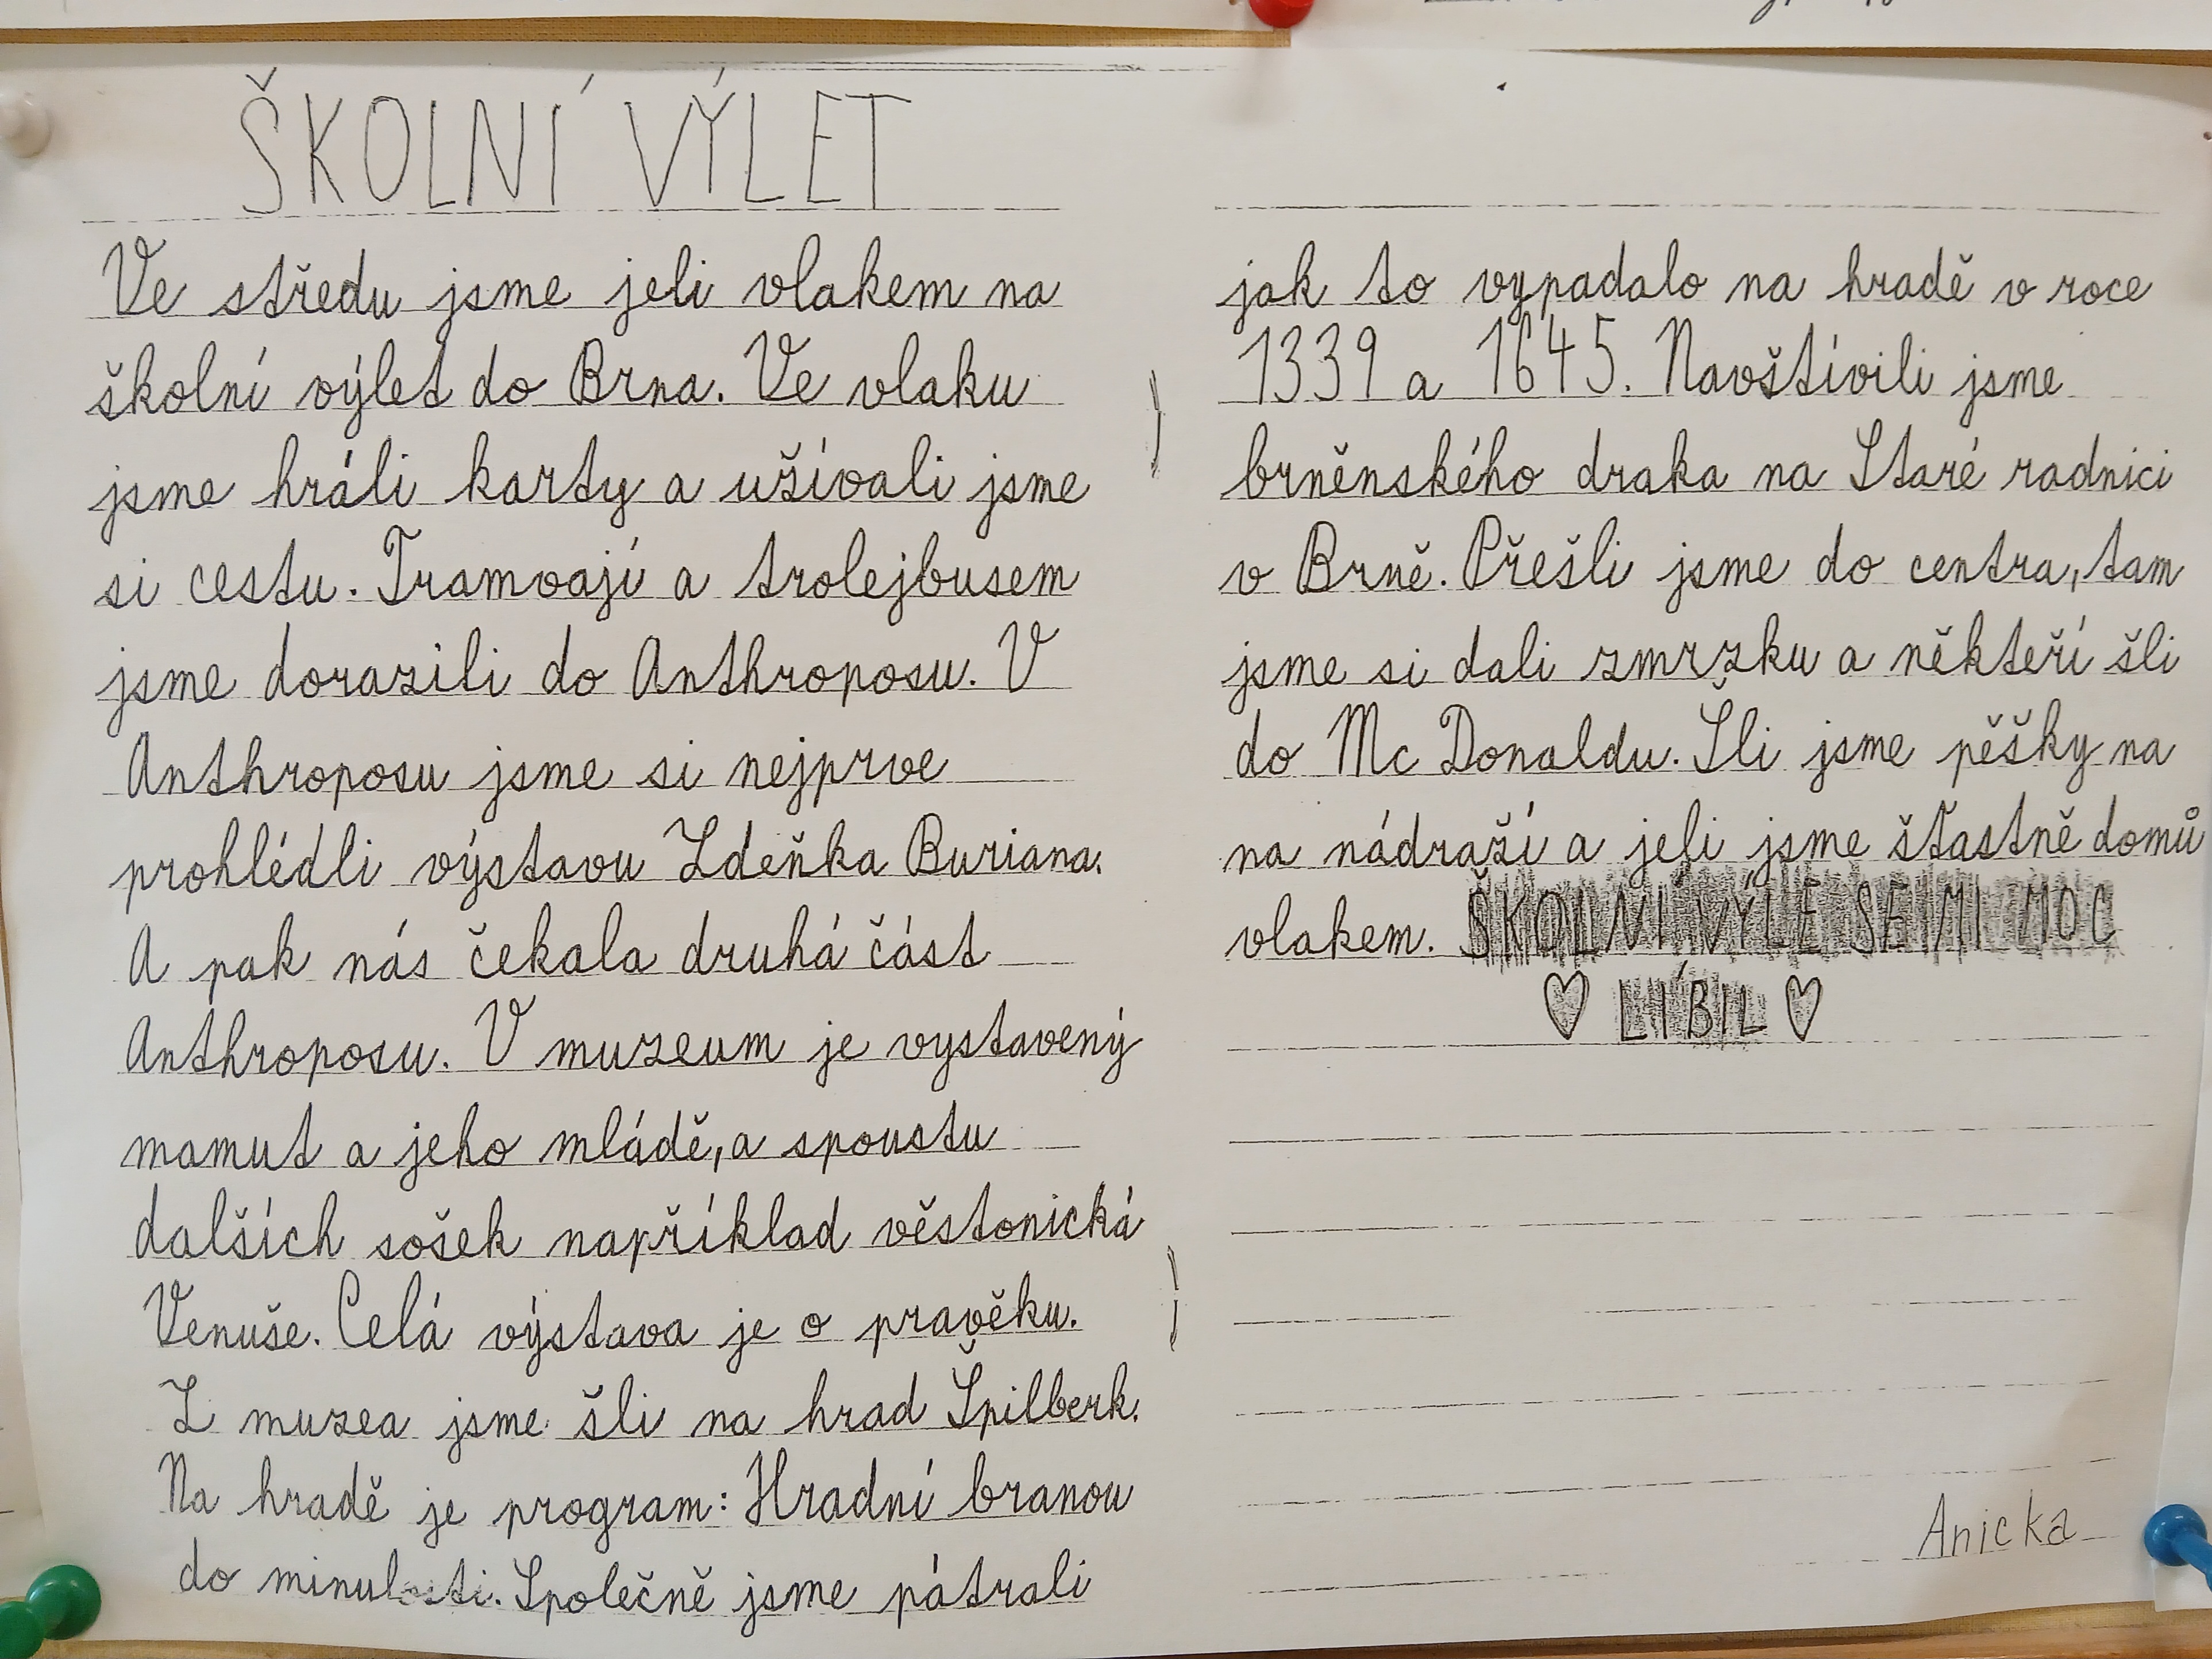 ŠKOLNÍ VÝLET
Ve středu jsme jeli vlakem na
školní výlet do Brna. Ve vlaku
jsme hráli karty a užívali jsme
si cestu. Tramvají a trolejbusem
jsme dorazili do Anthroposu. V
Anthroposu jsme si nejprve
prohlédli výstavu Zdeňka Buriana.
A pak nás čekala druhá část
Anthroposu. V muzeum je vystavený
mamut a jeho mládě, a spoustu
dalších sošek například věstonická
Venuše. Celá výstava je o pravěku.
Z muzea jsme šli na hrad Špilberk.
Na hradě je program: Hradní branou
do minulosti. Společně jsme pátrali
jak to vypadalo na hradě v roce
1339 a 1645. Navštívili jsme
brněnského draka na Staré radnici
v Brně. Přešli jsme do centra, tam
jsme si dali zmrzku a někteří šli
do Mc Donaldu. Šli jsme pěšky na
na nádraží a jeli jsme šťastně domů
vlakem. ŠKOLNÍ VÝLE SE MI MOC
♡ LÍBIL ♡
Anicka